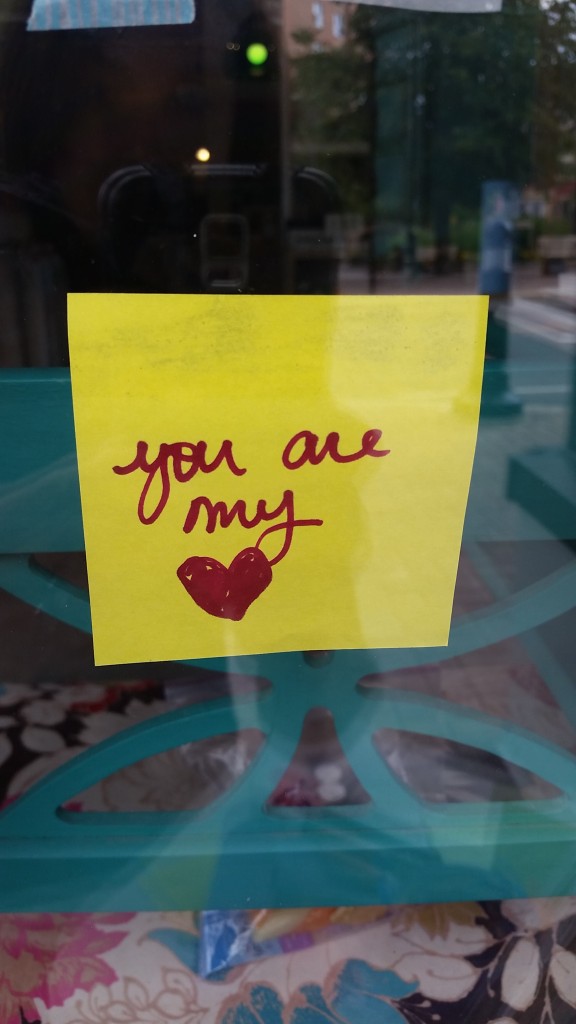 you are
my